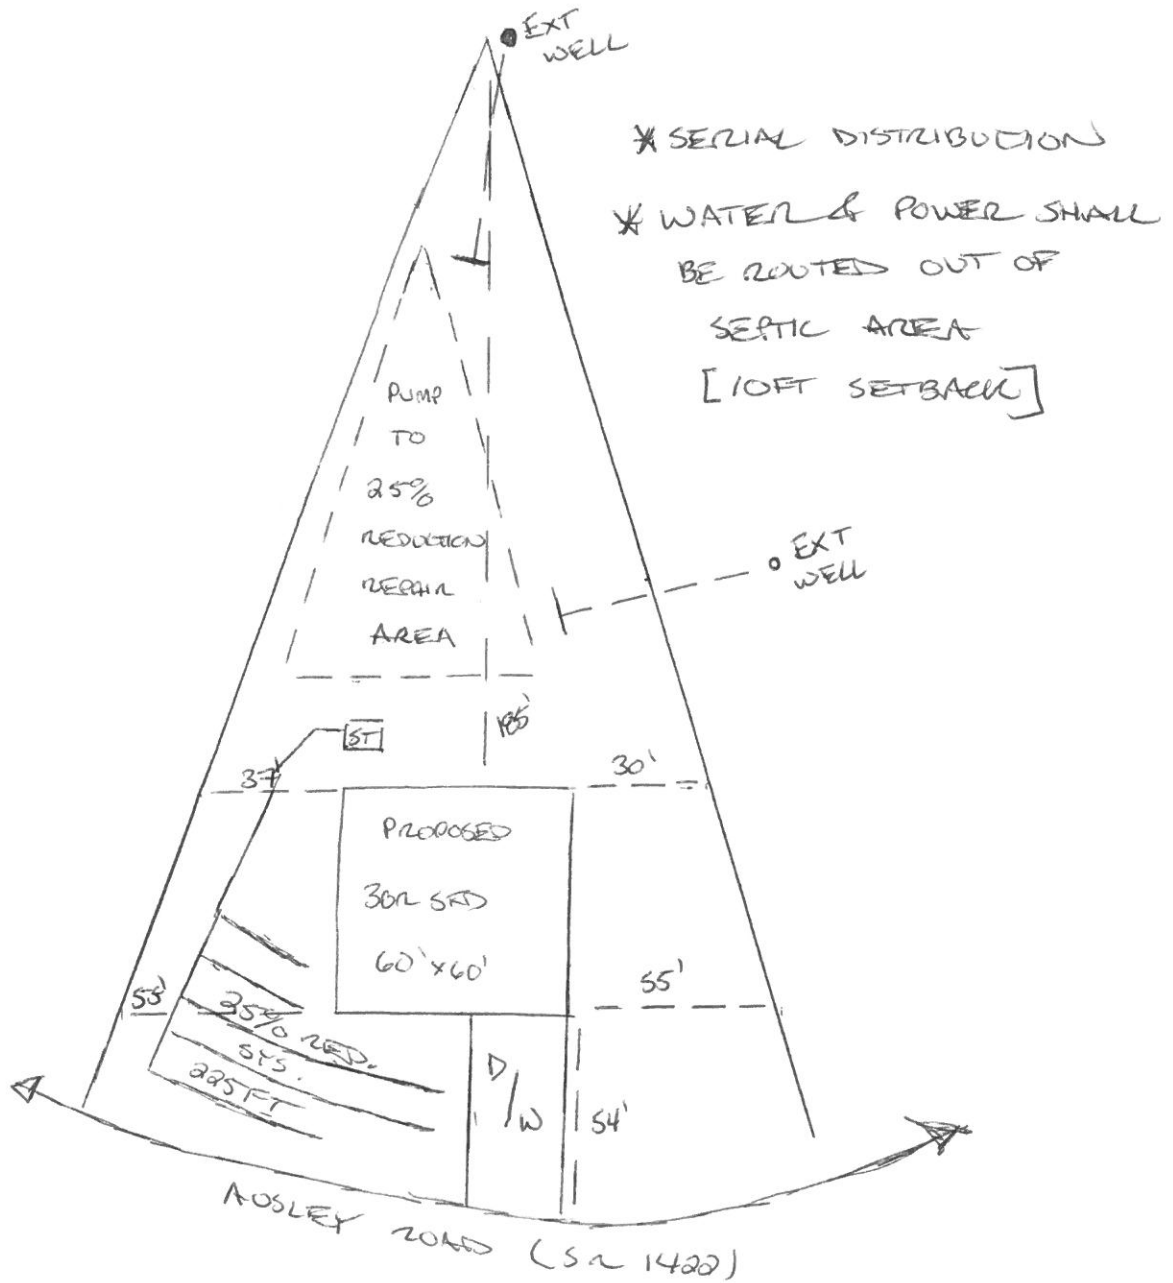 EXT
WELL
* SERIAL DISTRIBUTION
* WATER & POWER SHALL
BE ROUTED OUT OF
SEPTIC AREA
[10FT SETBACK]
PUMP
TO
25%
REDUCTION
REPAIR
AREA
EXT
WELL
185'
ST
37'
30'
PROPOSED
3BR SFD
60'x60'
55'
55'
25% RED.
SYS.
225FT
D/W
54'
AUSLEY ROAD (SR 1422)